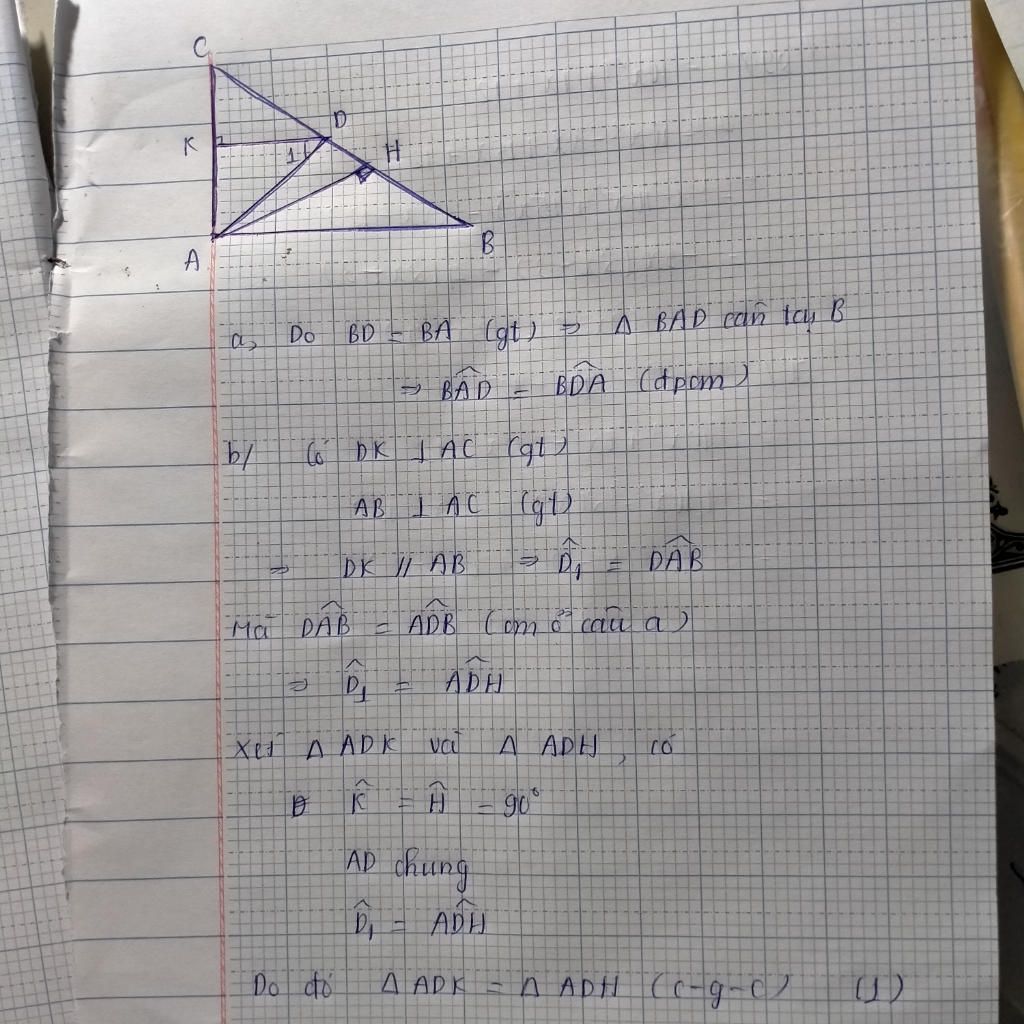 C
D
K
H
1
A
B
a, Do BD = BA (gt) ⇒ Δ BAD cân tại B
⇒ BÂD = BD̂A (đpcm)
b/ Có DK ⊥ AC (gt)
AB ⊥ AC (gt)
⇒ DK // AB ⇒ D̂₁ = DÂB
Mà DÂB = AD̂B (cm ở câu a)
⇒ D̂₁ = AD̂H
Xét Δ ADK và Δ ADH, có
K̂ = Ĥ = 90°
AD chung
D̂₁ = AD̂H
Do đó Δ ADK = Δ ADH (c-g-c) (1)